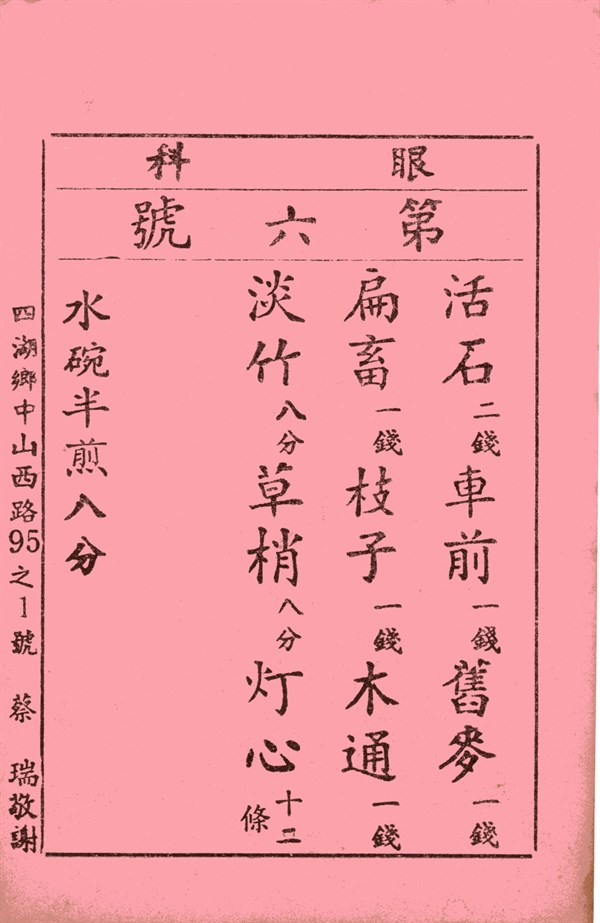 眼科
第六號
活石二錢車前一錢舊麥一錢
扁畜一錢枝子一錢木通一錢
淡竹八分草梢八分灯心十二條
水碗半煎八分
四湖鄉中山西路95之1號 蔡瑞敬謝